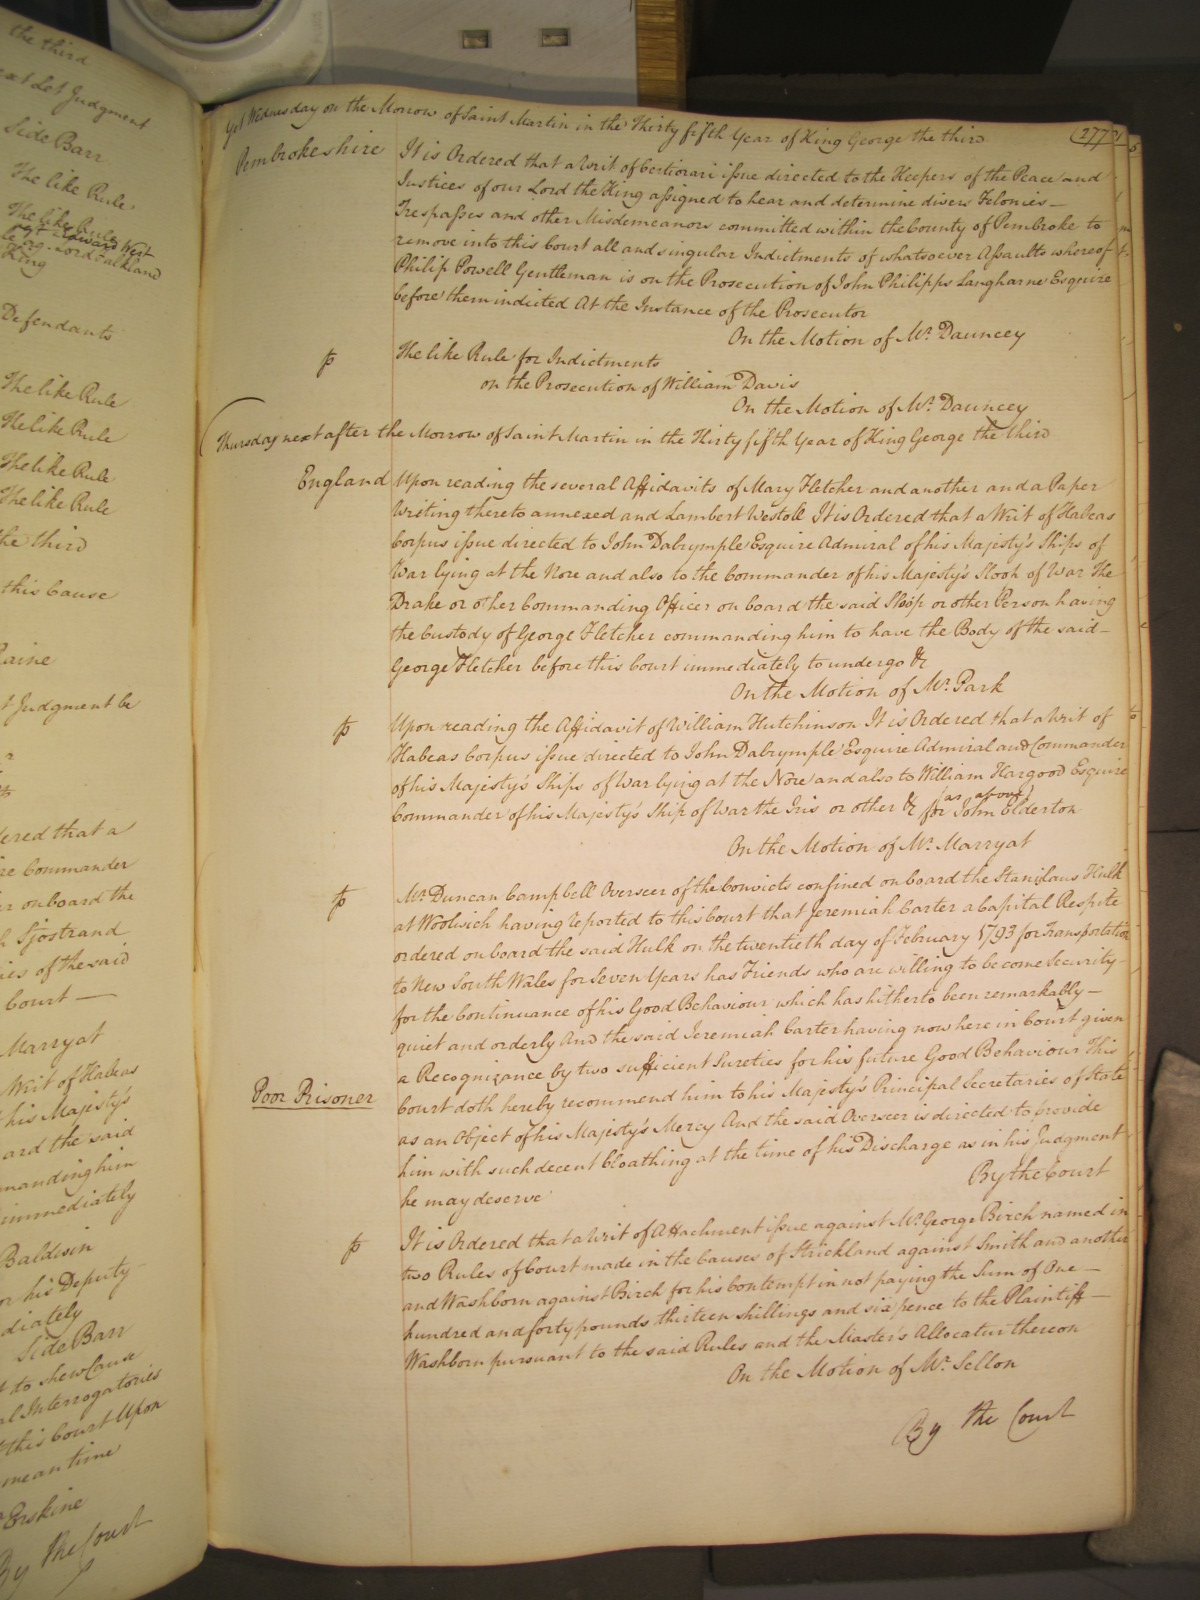 the third
next Let Judgment
Side Barr
The like Rule,
The like Rule
West
Lord Falkland
King
Defendants
The like Rule
The like Rule
The like Rule
The like Rule
the third
this Cause
Judgment be
ordered that a
Commander
or onboard the
Sjostrand
of the said
Court —
Marryat
Writ of Habeas
his Majesty's
ard the said
manding him
immediately
Baldwin
or his Deputy
diately
Side Barr
to shew Cause
al Interrogatories
this Court Upon
mean time
Erskine
By the Court
Yet Wednesday on the Morrow of Saint Martin in the Thirty fifth Year of King George the third
277
Pembrokeshire It is Ordered that a Writ of Certiorari issue directed to the Keepers of the Peace and
Justices of our Lord the King assigned to hear and determine divers Felonies —
Trespasses and other Misdemeanors committed within the County of Pembroke to
remove into this Court all and singular Indictments of whatsoever Assaults whereof
Philip Powell Gentleman is on the Prosecution of John Philipps Langharne Esquire
before them indicted At the Instance of the Prosecutor
On the Motion of Mr. Dauncey
The like Rule for Indictments
on the Prosecution of William Davis
On the Motion of Mr. Dauncey
Thursday next after the Morrow of Saint Martin in the Thirty fifth Year of King George the third
England Upon reading the several Affidavits of Mary Fletcher and another and a Paper
Writing thereto annexed and Lambert Westoll It is Ordered that a Writ of Habeas
Corpus issue directed to John Dalrymple Esquire Admiral of his Majesty's Ships of
War lying at the Nore and also to the Commander of his Majesty's Sloop of War The
Drake or other Commanding Officer on board the said Sloop or other Person having
the Custody of George Fletcher commanding him to have the Body of the said —
George Fletcher before this Court immediately to undergo &c
On the Motion of Mr. Park
Upon reading the Affidavit of William Hutchinson It is Ordered that a Writ of
Habeas Corpus issue directed to John Dalrymple Esquire Admiral and Commander
of his Majesty's Ships of War lying at the Nore and also to William Hargood Esquire
Commander of his Majesty's Ship of War the Iris or other &c (as above) for John Elderton
On the Motion of Mr. Marryat
Mr. Duncan Campbell Overseer of the Convicts confined onboard the Stanislaus Hulk
at Woolwich having reported to this Court that Jeremiah Carter a Capital Respite
ordered onboard the said Hulk on the twentieth day of February 1793 for Transportation
to New South Wales for Seven Years has Friends who are willing to become Security —
for the Continuance of his Good Behaviour which has hitherto been remarkably —
quiet and orderly And the said Jeremiah Carter having now here in Court given
a Recognizance by two sufficient Sureties for his future Good Behaviour This
Poor Prisoner Court doth hereby recommend him to his Majesty's Principal Secretaries of State
as an Object of his Majesty's Mercy And the said Overseer is directed to provide
him with such decent Cloathing at the time of his Discharge as in his Judgment
he may deserve
By the Court
It is Ordered that a Writ of Attachment issue against Mr. George Birch named in
two Rules of Court made in the Causes of Strickland against Smith and another
and Washborn against Birch for his Contempt in not paying the Sum of One —
hundred and forty pounds thirteen shillings and six pence to the Plaintiff —
Washborn pursuant to the said Rules and the Master's Allocatur thereon
On the Motion of Mr. Sellon
By the Court